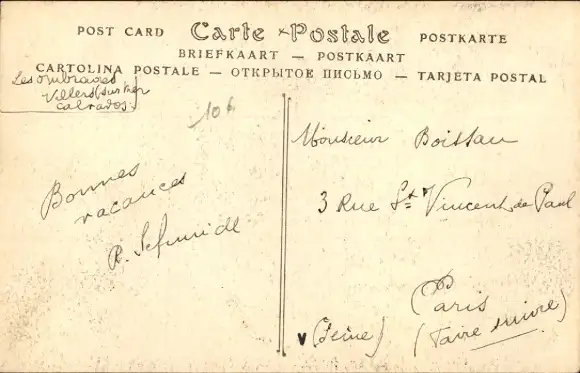 POST CARD Carte Postale POSTKARTE
BRIEFKAART — POSTKAART
CARTOLINA POSTALE — ОТКРЫТОЕ ПИСЬМО — TARJETA POSTAL
Les ombrages
Villers (sur Mer
Calvados)
106
Bonnes
vacances
R. Schmidt
Monsieur Boissau
3 Rue St Vincent de Paul
Paris
(Seine) (Faire suivre)